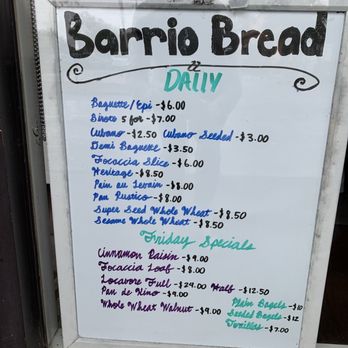 Barrio Bread
DAILY
Baguette/Epi - $6.00
Birote 5 for - $7.00
Cubano - $2.50 Cubano Seeded - $3.00
Demi Baguette - $3.50
Focaccia Slice - $6.00
Heritage - $8.50
Pain au Levain - $8.00
Pan Rustico - $8.00
Super Seed Whole Wheat - $8.50
Sesame Whole Wheat - $8.50
Friday Specials
Cinnamon Raisin - $9.00
Focaccia Loaf - $8.00
Locavore Full - $24.00 Half - $12.50
Pan de Kino - $9.00
Whole Wheat Walnut - $9.00
Plain Bagels - $10
Seeded Bagels - $12
Tortillas - $7.00